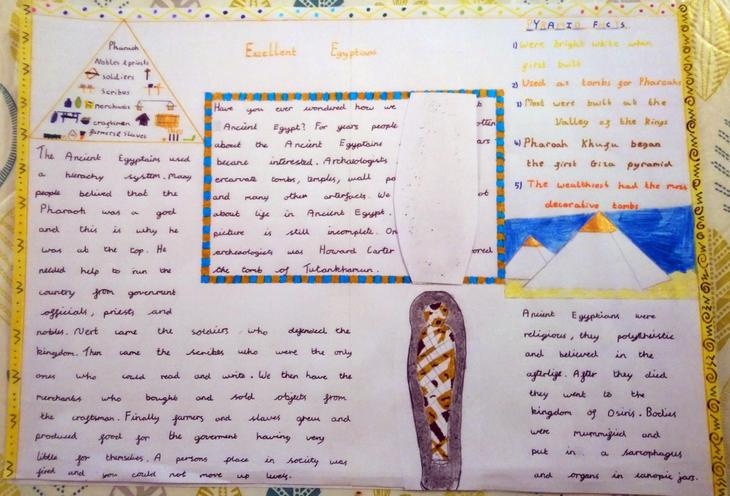 Excellent Egyptians
Pharaoh
Nobles & priests
soldiers
Scribes
merchants
craftsmen
farmers & slaves
Have you ever wondered how we
Ancient Egypt? For years people
about the Ancient Egyptains
became interested. Archaologists
excarvate tombs, temples, wall
and many other artefacts. We
about life in Ancient Egypt.
picture is still incomplete.
archeaologists was Howard Carter
the tomb of Tutankhamun.
PYRAMID FACTS
1) Were bright white when
first built
2) Used as tombs for Pharoahs
3) Most were built at the
Valley of the Kings
4) Pharoah Khufu began
the first Giza pyramid
5) The wealthiest had the most
decorative tombs
The Ancient Egyptains used
a hierachy system. Many
people belived that the
Pharaoh was a god
and this is why he
was at the top. He
needed help to run the
country from government
officials, priests and
nobles. Next came the soldiers who defended the
kingdom. Then came the scribes who were the only
ones who could read and write. We then have the
merchants who bought and sold objects from
the craftsman. Finally farmers and slaves grew and
produced food for the goverment having very
little for themselves. A persons place in society was
fixed and you could not move up levels.
Ancient Egyptians were
religious, they polytheistic
and believed in the
afterlife. After they died
they went to the
kingdom of Osiris. Bodies
were mummified and
put in a sarcophagus
and organs in canopic jars.